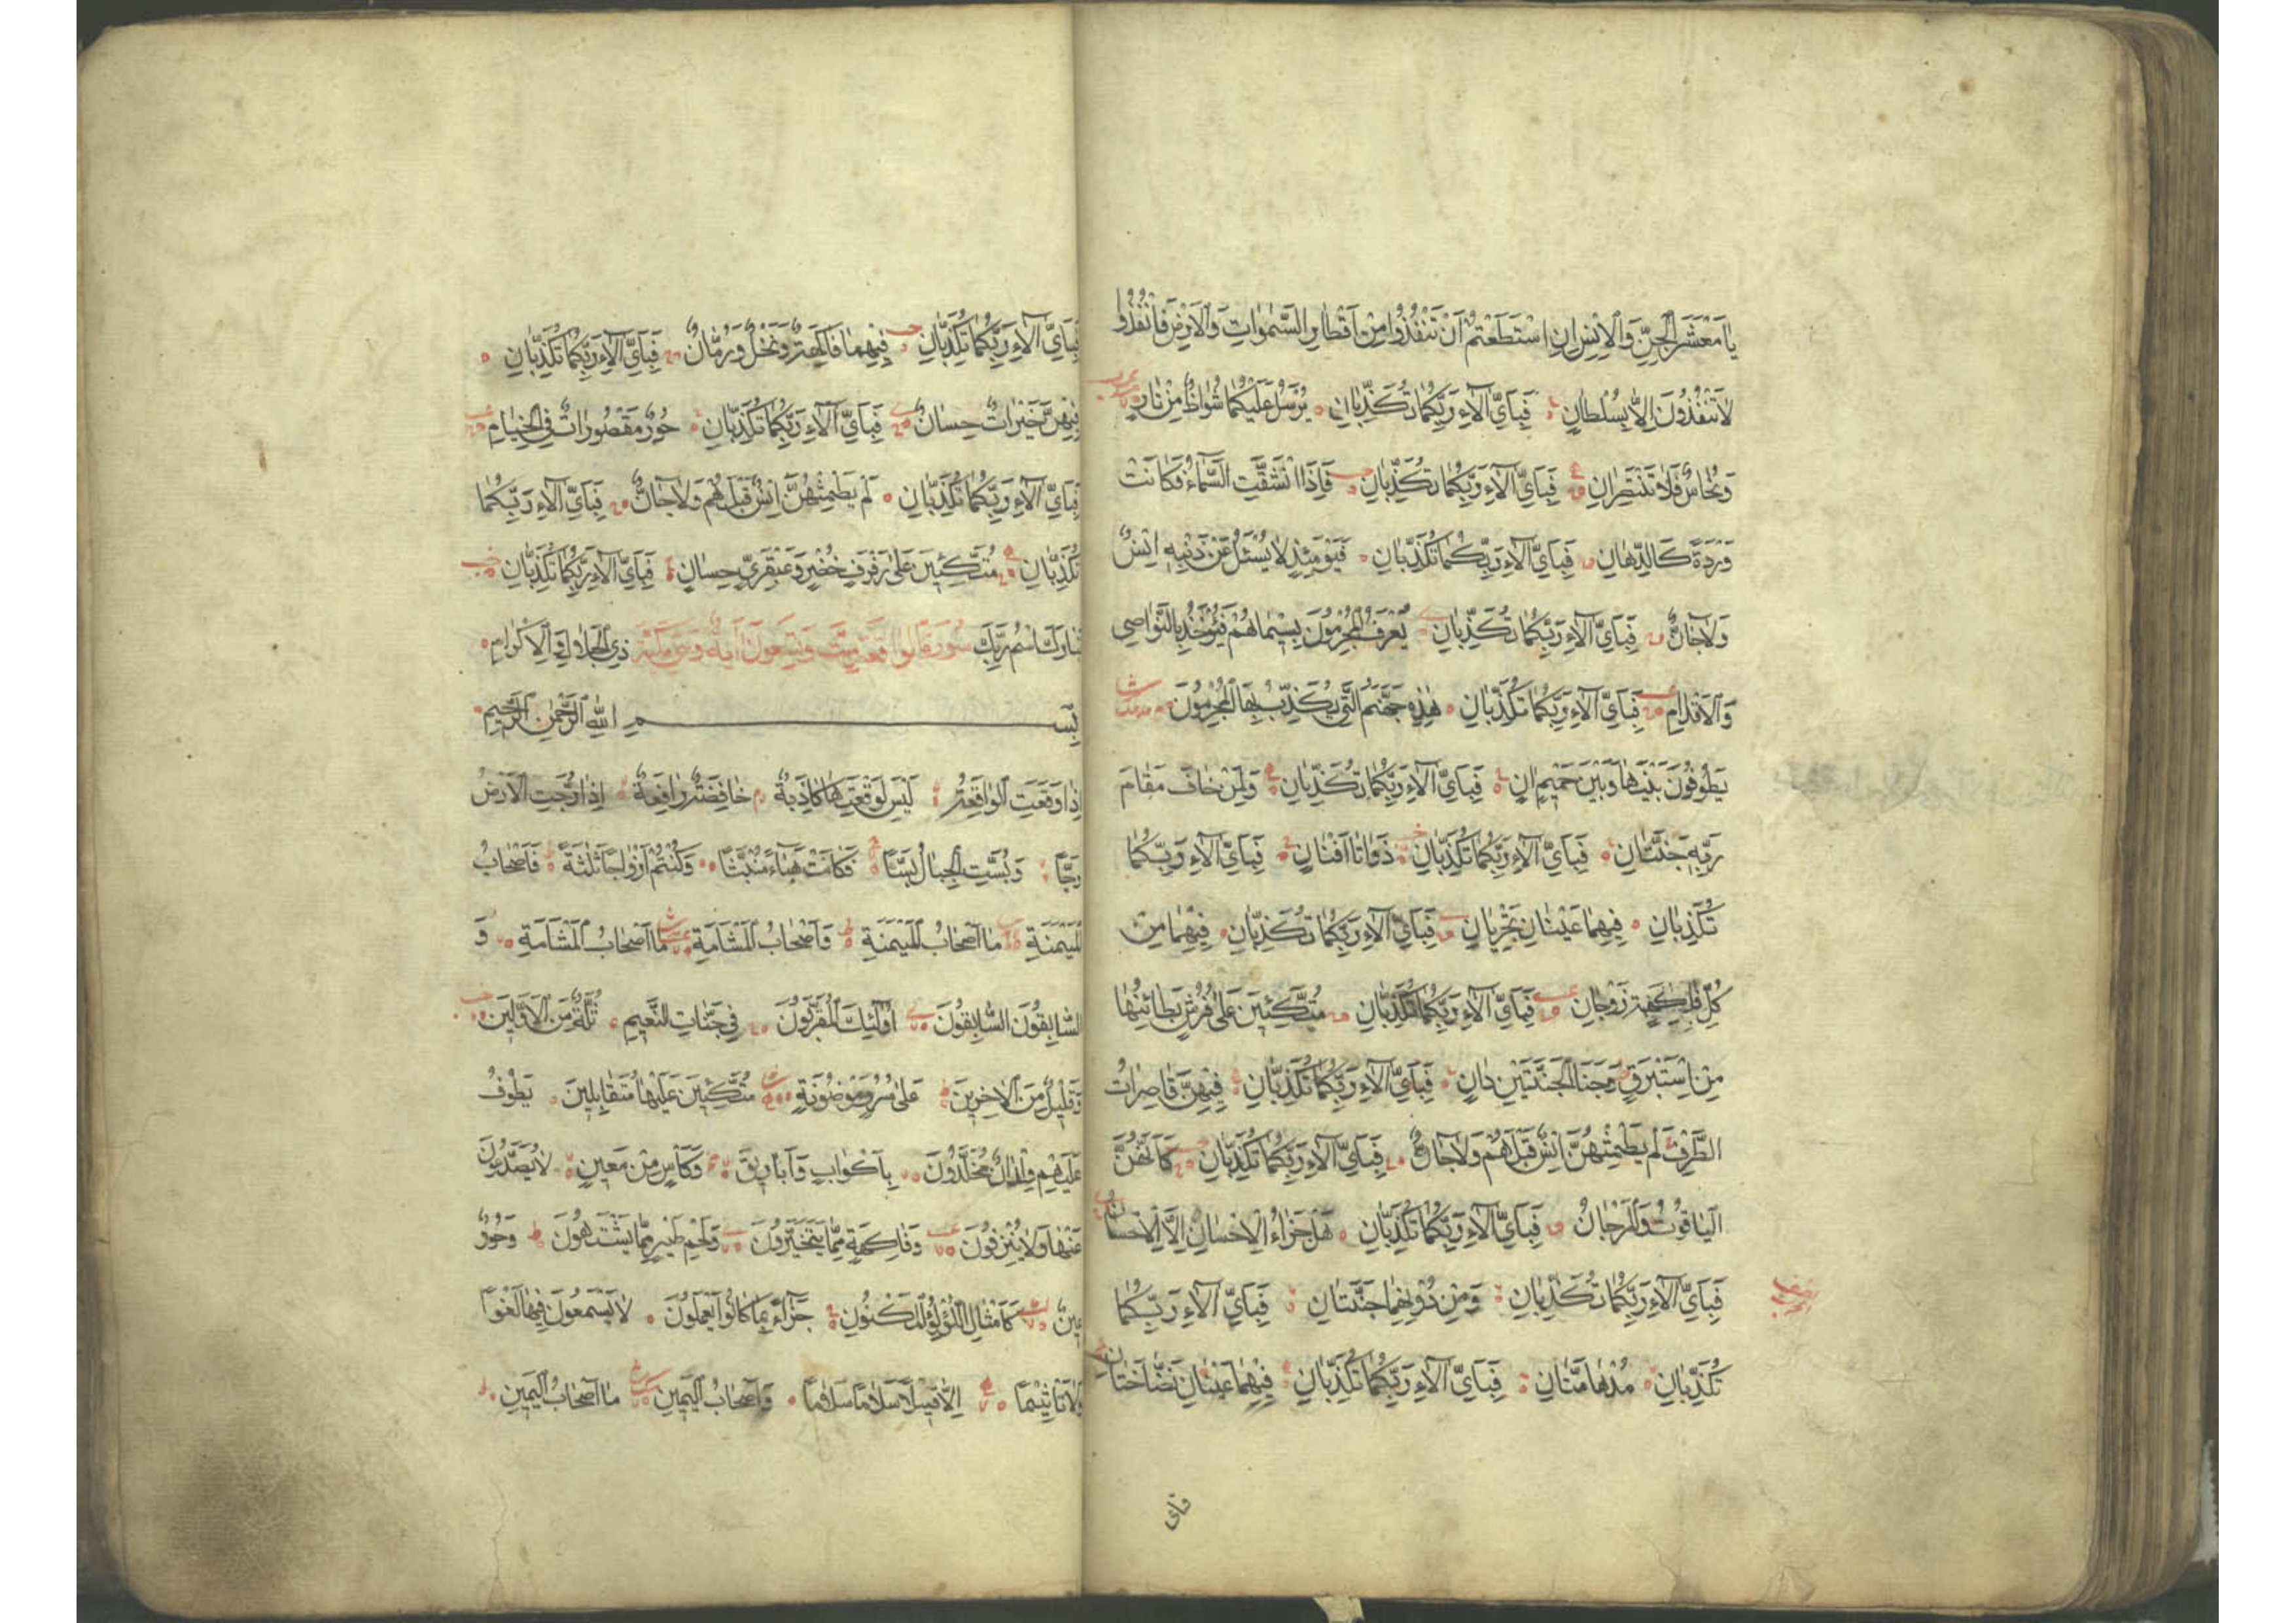 يَا مَعْشَرَ الْجِنِّ وَالْاِنْسِ اِنِ اسْتَطَعْتُمْ اَنْ تَنْفُذُوا مِنْ اَقْطَارِ السَّمٰوَاتِ وَالْاَرْضِ فَانْفُذُوا
لَا تَنْفُذُونَ اِلَّا بِسُلْطَانٍ فَبِاَيِّ اٰلَاءِ رَبِّكُمَا تُكَذِّبَانِ يُرْسَلُ عَلَيْكُمَا شُوَاظٌ مِنْ نَارٍ
وَنُحَاسٌ فَلَا تَنْتَصِرَانِ فَبِاَيِّ اٰلَاءِ رَبِّكُمَا تُكَذِّبَانِ فَاِذَا انْشَقَّتِ السَّمَاءُ فَكَانَتْ
وَرْدَةً كَالدِّهَانِ فَبِاَيِّ اٰلَاءِ رَبِّكُمَا تُكَذِّبَانِ فَيَوْمَئِذٍ لَا يُسْئَلُ عَنْ ذَنْبِهٖ اِنْسٌ
وَلَا جَانٌّ فَبِاَيِّ اٰلَاءِ رَبِّكُمَا تُكَذِّبَانِ يُعْرَفُ الْمُجْرِمُونَ بِسِيْمَاهُمْ فَيُؤْخَذُ بِالنَّوَاصِي
وَالْاَقْدَامِ فَبِاَيِّ اٰلَاءِ رَبِّكُمَا تُكَذِّبَانِ هٰذِهٖ جَهَنَّمُ الَّتِي يُكَذِّبُ بِهَا الْمُجْرِمُونَ
يَطُوفُونَ بَيْنَهَا وَبَيْنَ حَمِيمٍ اٰنٍ فَبِاَيِّ اٰلَاءِ رَبِّكُمَا تُكَذِّبَانِ وَلِمَنْ خَافَ مَقَامَ
رَبِّهٖ جَنَّتَانِ فَبِاَيِّ اٰلَاءِ رَبِّكُمَا تُكَذِّبَانِ ذَوَاتَا اَفْنَانٍ فَبِاَيِّ اٰلَاءِ رَبِّكُمَا
تُكَذِّبَانِ فِيهِمَا عَيْنَانِ تَجْرِيَانِ فَبِاَيِّ اٰلَاءِ رَبِّكُمَا تُكَذِّبَانِ فِيهِمَا مِنْ
كُلِّ فَاكِهَةٍ زَوْجَانِ فَبِاَيِّ اٰلَاءِ رَبِّكُمَا تُكَذِّبَانِ مُتَّكِئِينَ عَلٰى فُرُشٍ بَطَائِنُهَا
مِنْ اِسْتَبْرَقٍ وَجَنَا الْجَنَّتَيْنِ دَانٍ فَبِاَيِّ اٰلَاءِ رَبِّكُمَا تُكَذِّبَانِ فِيهِنَّ قَاصِرَاتُ
الطَّرْفِ لَمْ يَطْمِثْهُنَّ اِنْسٌ قَبْلَهُمْ وَلَا جَانٌّ فَبِاَيِّ اٰلَاءِ رَبِّكُمَا تُكَذِّبَانِ كَاَنَّهُنَّ
الْيَاقُوتُ وَالْمَرْجَانُ فَبِاَيِّ اٰلَاءِ رَبِّكُمَا تُكَذِّبَانِ هَلْ جَزَاءُ الْاِحْسَانِ اِلَّا الْاِحْسَانُ
فَبِاَيِّ اٰلَاءِ رَبِّكُمَا تُكَذِّبَانِ وَمِنْ دُونِهِمَا جَنَّتَانِ فَبِاَيِّ اٰلَاءِ رَبِّكُمَا
تُكَذِّبَانِ مُدْهَامَّتَانِ فَبِاَيِّ اٰلَاءِ رَبِّكُمَا تُكَذِّبَانِ فِيهِمَا عَيْنَانِ نَضَّاخَتَانِ
فبای
فَبِاَيِّ اٰلَاءِ رَبِّكُمَا تُكَذِّبَانِ فِيهِمَا فَاكِهَةٌ وَنَخْلٌ وَرُمَّانٌ فَبِاَيِّ اٰلَاءِ رَبِّكُمَا تُكَذِّبَانِ
فِيهِنَّ خَيْرَاتٌ حِسَانٌ فَبِاَيِّ اٰلَاءِ رَبِّكُمَا تُكَذِّبَانِ حُورٌ مَقْصُورَاتٌ فِي الْخِيَامِ
فَبِاَيِّ اٰلَاءِ رَبِّكُمَا تُكَذِّبَانِ لَمْ يَطْمِثْهُنَّ اِنْسٌ قَبْلَهُمْ وَلَا جَانٌّ فَبِاَيِّ اٰلَاءِ رَبِّكُمَا
تُكَذِّبَانِ مُتَّكِئِينَ عَلٰى رَفْرَفٍ خُضْرٍ وَعَبْقَرِيٍّ حِسَانٍ فَبِاَيِّ اٰلَاءِ رَبِّكُمَا تُكَذِّبَانِ
تَبَارَكَ اسْمُ رَبِّكَ سورة الواقعة ست وتسعون اية وهي مكية ذِي الْجَلَالِ وَالْاِكْرَامِ
بِسْمِ اللهِ الرَّحْمٰنِ الرَّحِيمِ
اِذَا وَقَعَتِ الْوَاقِعَةُ لَيْسَ لِوَقْعَتِهَا كَاذِبَةٌ خَافِضَةٌ رَافِعَةٌ اِذَا رُجَّتِ الْاَرْضُ
رَجًّا وَبُسَّتِ الْجِبَالُ بَسًّا فَكَانَتْ هَبَاءً مُنْبَثًّا وَكُنْتُمْ اَزْوَاجًا ثَلٰثَةً فَاَصْحَابُ
الْمَيْمَنَةِ مَا اَصْحَابُ الْمَيْمَنَةِ وَاَصْحَابُ الْمَشْاَمَةِ مَا اَصْحَابُ الْمَشْاَمَةِ وَ
السَّابِقُونَ السَّابِقُونَ اُولٰئِكَ الْمُقَرَّبُونَ فِي جَنَّاتِ النَّعِيمِ ثُلَّةٌ مِنَ الْاَوَّلِينَ
وَقَلِيلٌ مِنَ الْاٰخِرِينَ عَلٰى سُرُرٍ مَوْضُونَةٍ مُتَّكِئِينَ عَلَيْهَا مُتَقَابِلِينَ يَطُوفُ
عَلَيْهِمْ وِلْدَانٌ مُخَلَّدُونَ بِاَكْوَابٍ وَاَبَارِيقَ وَكَأْسٍ مِنْ مَعِينٍ لَا يُصَدَّعُونَ
عَنْهَا وَلَا يُنْزِفُونَ وَفَاكِهَةٍ مِمَّا يَتَخَيَّرُونَ وَلَحْمِ طَيْرٍ مِمَّا يَشْتَهُونَ وَحُورٌ
عِينٌ كَاَمْثَالِ اللُّؤْلُؤِ الْمَكْنُونِ جَزَاءً بِمَا كَانُوا يَعْمَلُونَ لَا يَسْمَعُونَ فِيهَا لَغْوًا
وَلَا تَأْثِيمًا اِلَّا قِيلًا سَلَامًا سَلَامًا وَاَصْحَابُ الْيَمِينِ مَا اَصْحَابُ الْيَمِينِ